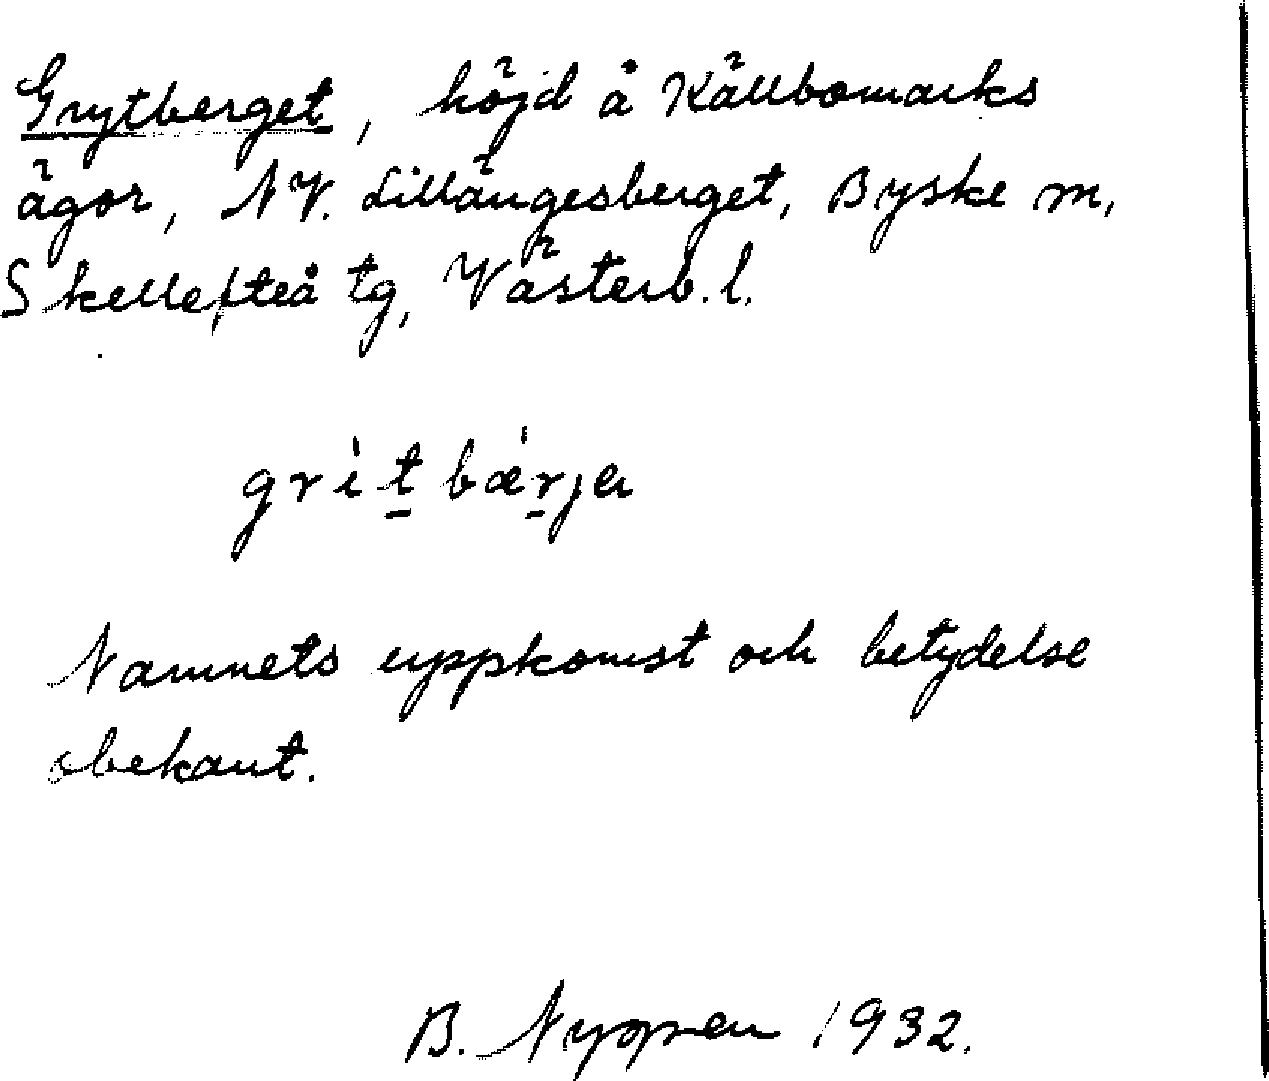 Grytberget, höjd å Källbomarks
ägor, NV. Lillängesberget, Byske m,
Skellefteå tg, Västerb. l.
grit bærja
Namnets uppkomst och betydelse
obekant.
B. 1932.